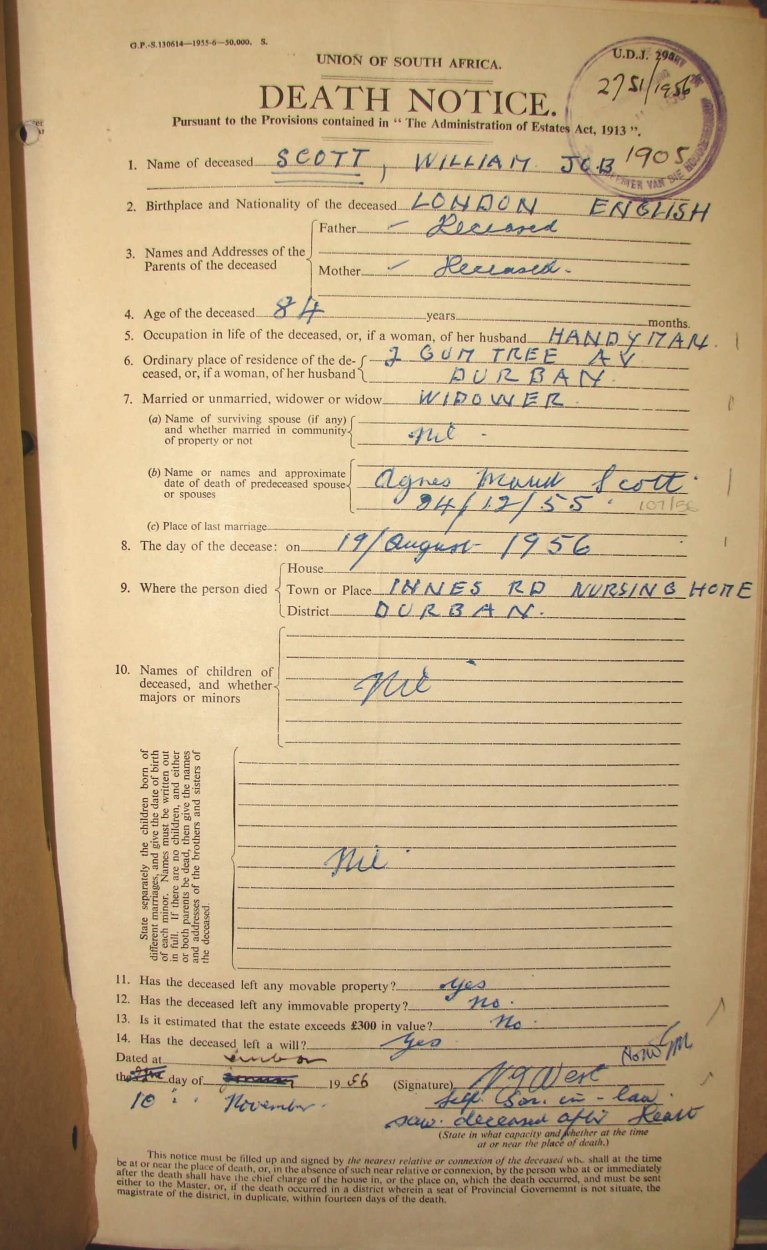 G.P.-S.130614—1955-6—50,000. S.
U.D.J. 294
UNION OF SOUTH AFRICA.
2751/1956
DEATH NOTICE.
Pursuant to the Provisions contained in "The Administration of Estates Act, 1913".
1. Name of deceased SCOTT, WILLIAM JOB 1905
2. Birthplace and Nationality of the deceased LONDON ENGLISH
Father — Deceased
3. Names and Addresses of the
Parents of the deceased
Mother — Deceased.
4. Age of the deceased 84 years months.
5. Occupation in life of the deceased, or, if a woman, of her husband HANDYMAN.
6. Ordinary place of residence of the de- 2 GUM TREE AV
ceased, or, if a woman, of her husband DURBAN.
7. Married or unmarried, widower or widow WIDOWER.
(a) Name of surviving spouse (if any)
and whether married in community
of property or not Nil.
(b) Name or names and approximate Agnes Maud Scott.
date of death of predeceased spouse
or spouses 24/12/55.
(c) Place of last marriage
8. The day of the decease: on 19/August 1956
House
9. Where the person died Town or Place INNES RD NURSING HOME
District DURBAN.
10. Names of children of
deceased, and whether Nil
majors or minors
State separately the children born of
different marriages, and give the date of birth
of each minor. Names must be written out
in full. If there are no children, and either
or both parents be dead, then give the names
and addresses of the brothers and sisters of
the deceased.
Nil.
11. Has the deceased left any movable property? Yes
12. Has the deceased left any immovable property? No.
13. Is it estimated that the estate exceeds £300 in value? No.
14. Has the deceased left a will? Yes
Dated at Durban
the day of 1956 (Signature) West
10 November. Self. Son-in-law.
saw deceased after Death
(State in what capacity and whether at the time
at or near the place of death.)
This notice must be filled up and signed by the nearest relative or connexion of the deceased who shall at the time
be at or near the place of death, or, in the absence of such near relative or connexion, by the person who at or immediately
after the death shall have the chief charge of the house in, or the place on, which the death occurred, and must be sent
either to the Master, or, if the death occurred in a district wherein a seat of Provincial Governemnt is not situate, the
magistrate of the district, in duplicate, within fourteen days of the death.